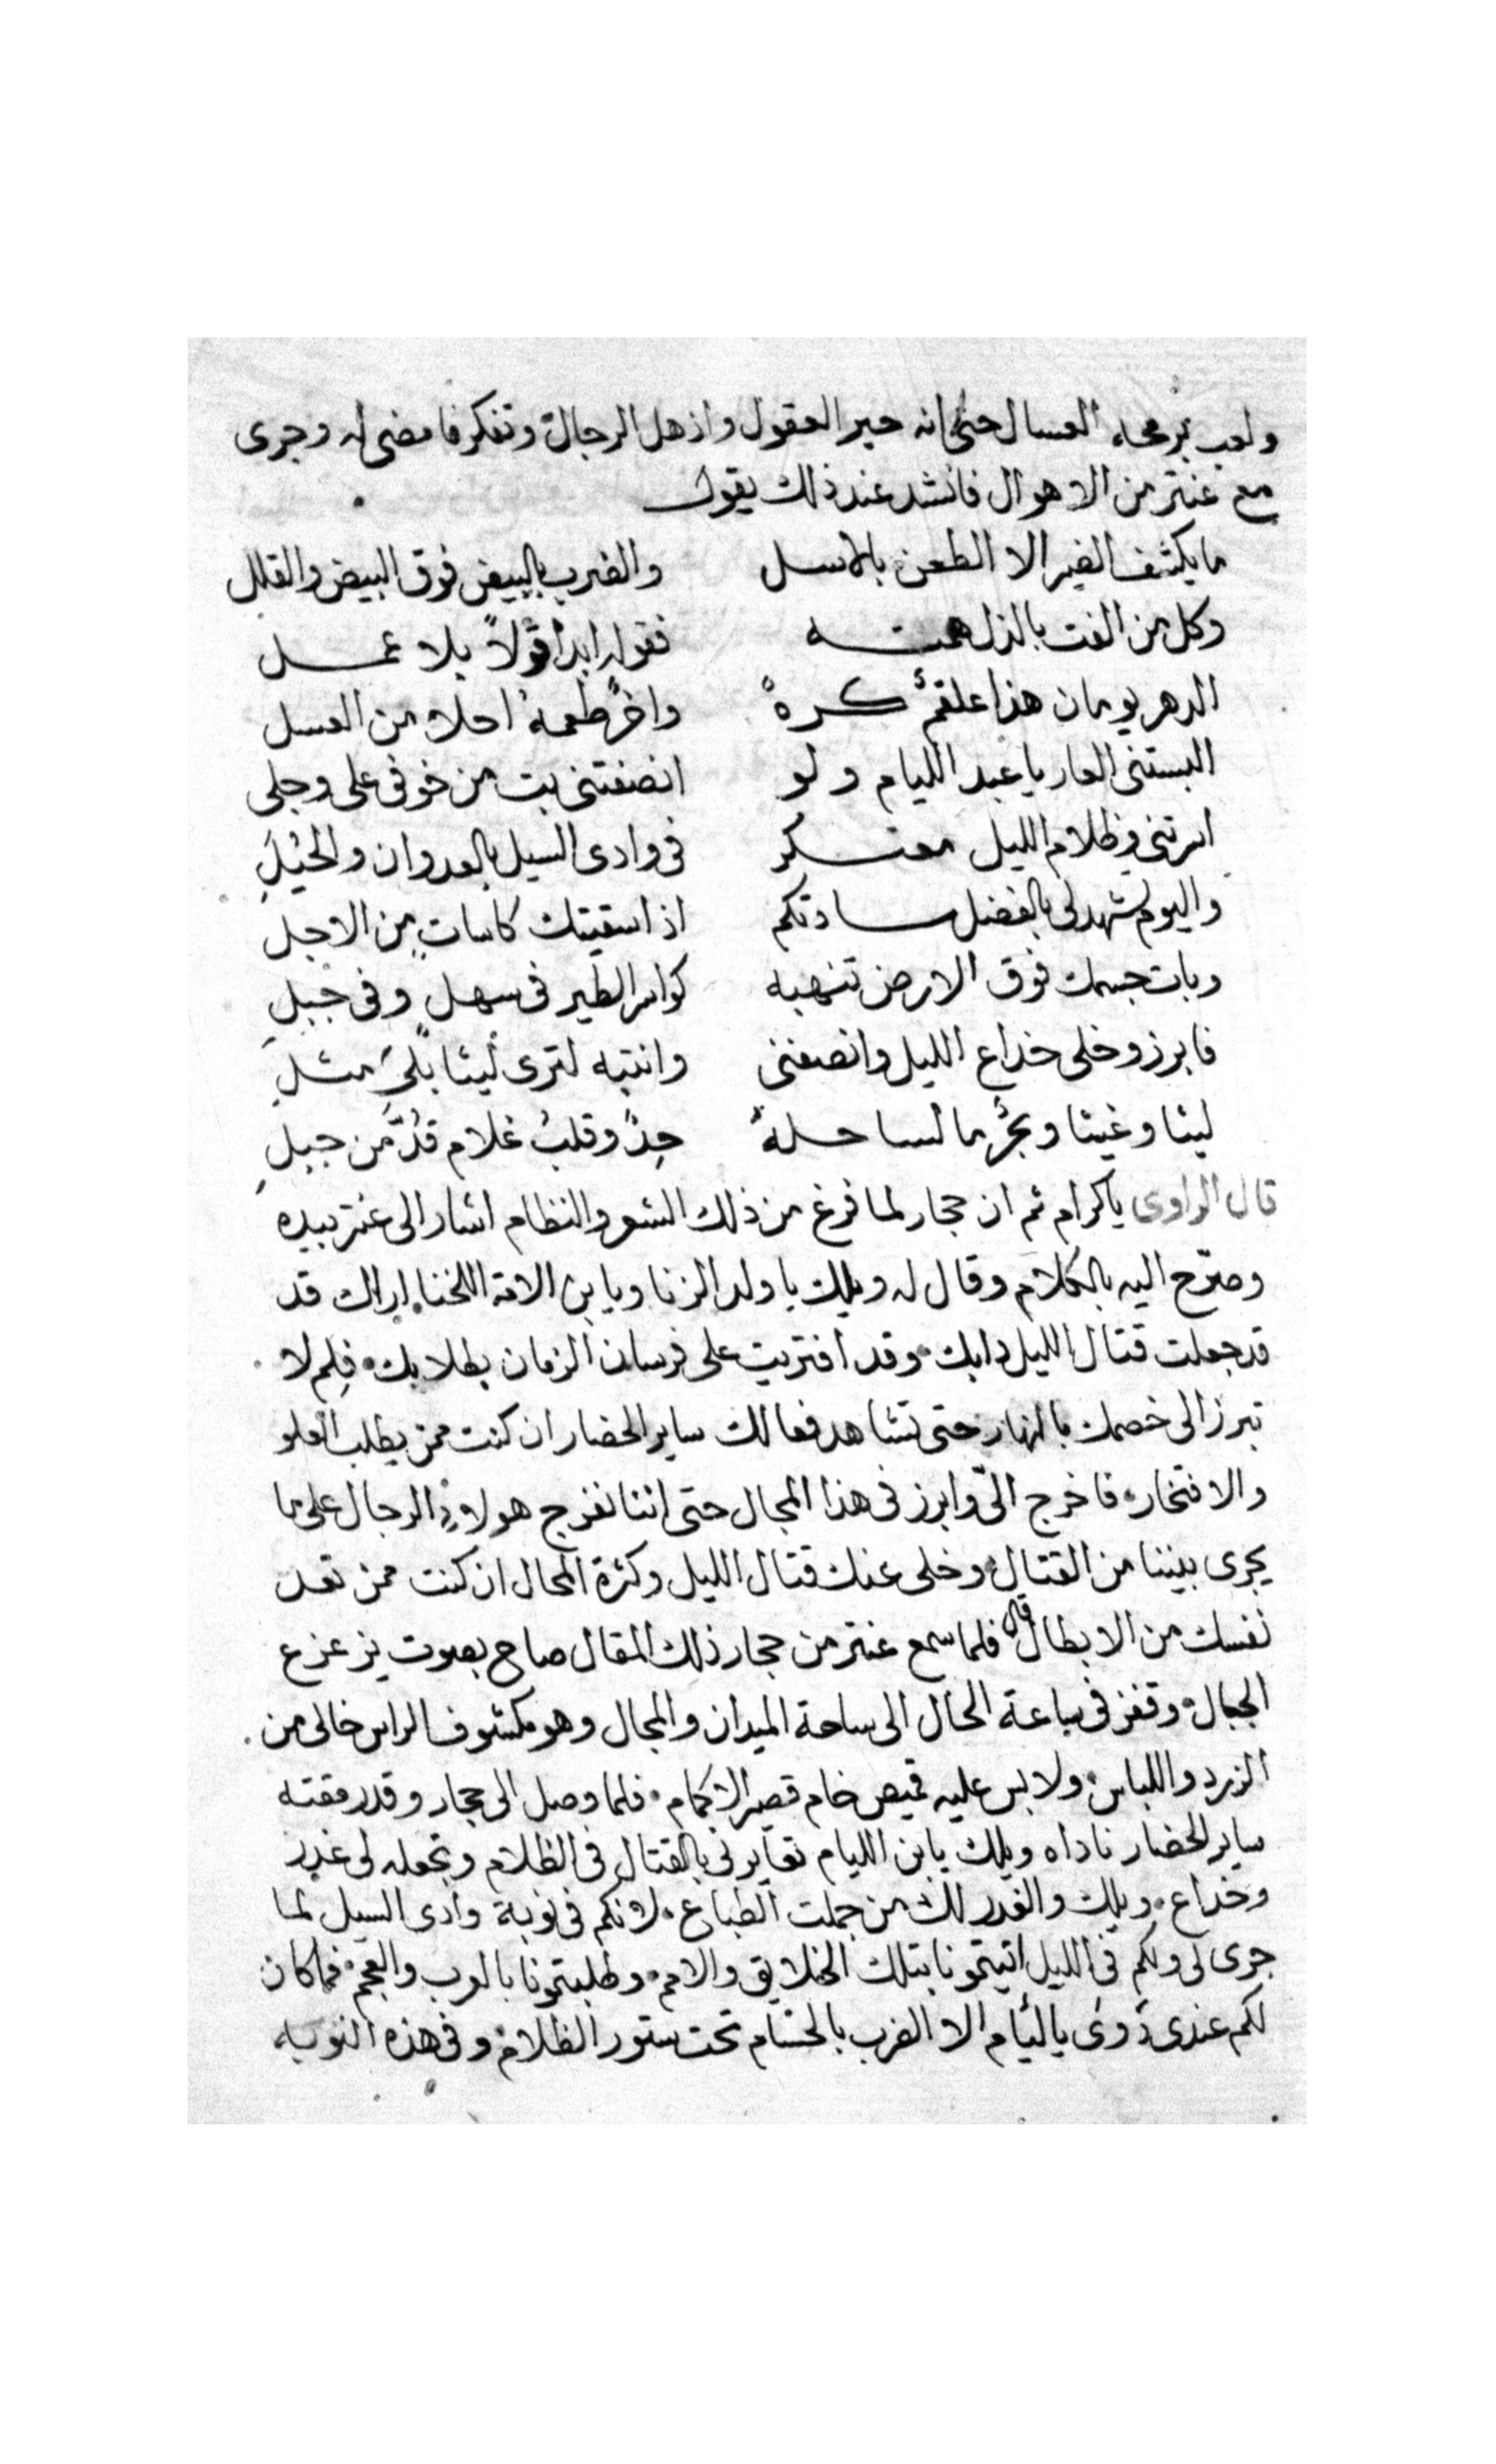 ولعب برمحه العسال حتى انه حير العقول واذهل الرجال وتفكر فا مضى له وجرى
مع عنتر من الاهوال فانشد عند ذلك يقول
ما يكشف الضير الا الطعن بالاسل والضرب بالبيض فوق البيض والقلل
وكل من الفت بالذل همته فقوله ابدا قولاً بلا عمل
الدهر يومان هذا علقمٌ كره واخرٌ طعمه احلا من العسل
البستني العار يا عبد الليام ولو انصفتني بت من خوفي على وجلى
اسرتني وظلام الليل معتكر في وادى السيل بالعدوان والحيل
واليوم تشهد لى بالفضل سادتكم اذا سقيتك كاسات من الاجل
وبات جسمك فوق الارض تنهبه كواسر الطير في سهل وفي جبل
فابرز وخلى خداع الليل وانصفني وانتبه لترى ليثا بلى مثل
ليثا وغيثا وبحرٌ ما لساحله جدٌ وقلب غلام قدَّ من جبل
قال الراوى ياكرام ثم ان حجار لما فرغ من ذلك الشعر والنظام اشار الى عنتر بيده
وصرّح اليه بالكلام وقال له ويلك يا ولد الزنا ويا بن الامة اللخنا اراك قد
قد جعلت قتال الليل دابك وقد افتريت على فرسان الزمان بطلابك فلم لا
تبرز الى خصمك بالنهار حتى تشاهد فعالك ساير الحضار ان كنت ممن يطلب العلو
والافتخار فاخرج الىّ وابرز في هذا المجال حتى اننا نفرج هولاءِ الرجال على ما
يجرى بيننا من القتال وخلى عنك قتال الليل وكثرة المحال ان كنت ممن تعد
نفسك من الابطال قال فلما سمع عنتر من حجار ذلك المقال صاح بصوت يزعزع
الجبال وقفز في ساعة الحال الى ساحة الميدان والمجال وهو مكشوف الراس خالى من
الزرد واللباس ولابس عليه قميص خام قصير الاكمام فلما وصل الى حجار وقد رمقته
ساير الحضار ناداه ويلك يابن الليام تعايرني بالقتال في الظلام وتجعله لى غدر
وخداع ويلك والغدر لك من جملت الطباع لانكم في نوبة وادى السيل لما
جرى لى ولكم في الليل اتيتمونا بتلك الخلايق والامم وطلبتمونا بالعرب والعجم فما كان
لكم عندى دوى يا ليام الا الضرب بالحسام تحت ستور الظلام وفي هذه النوبه